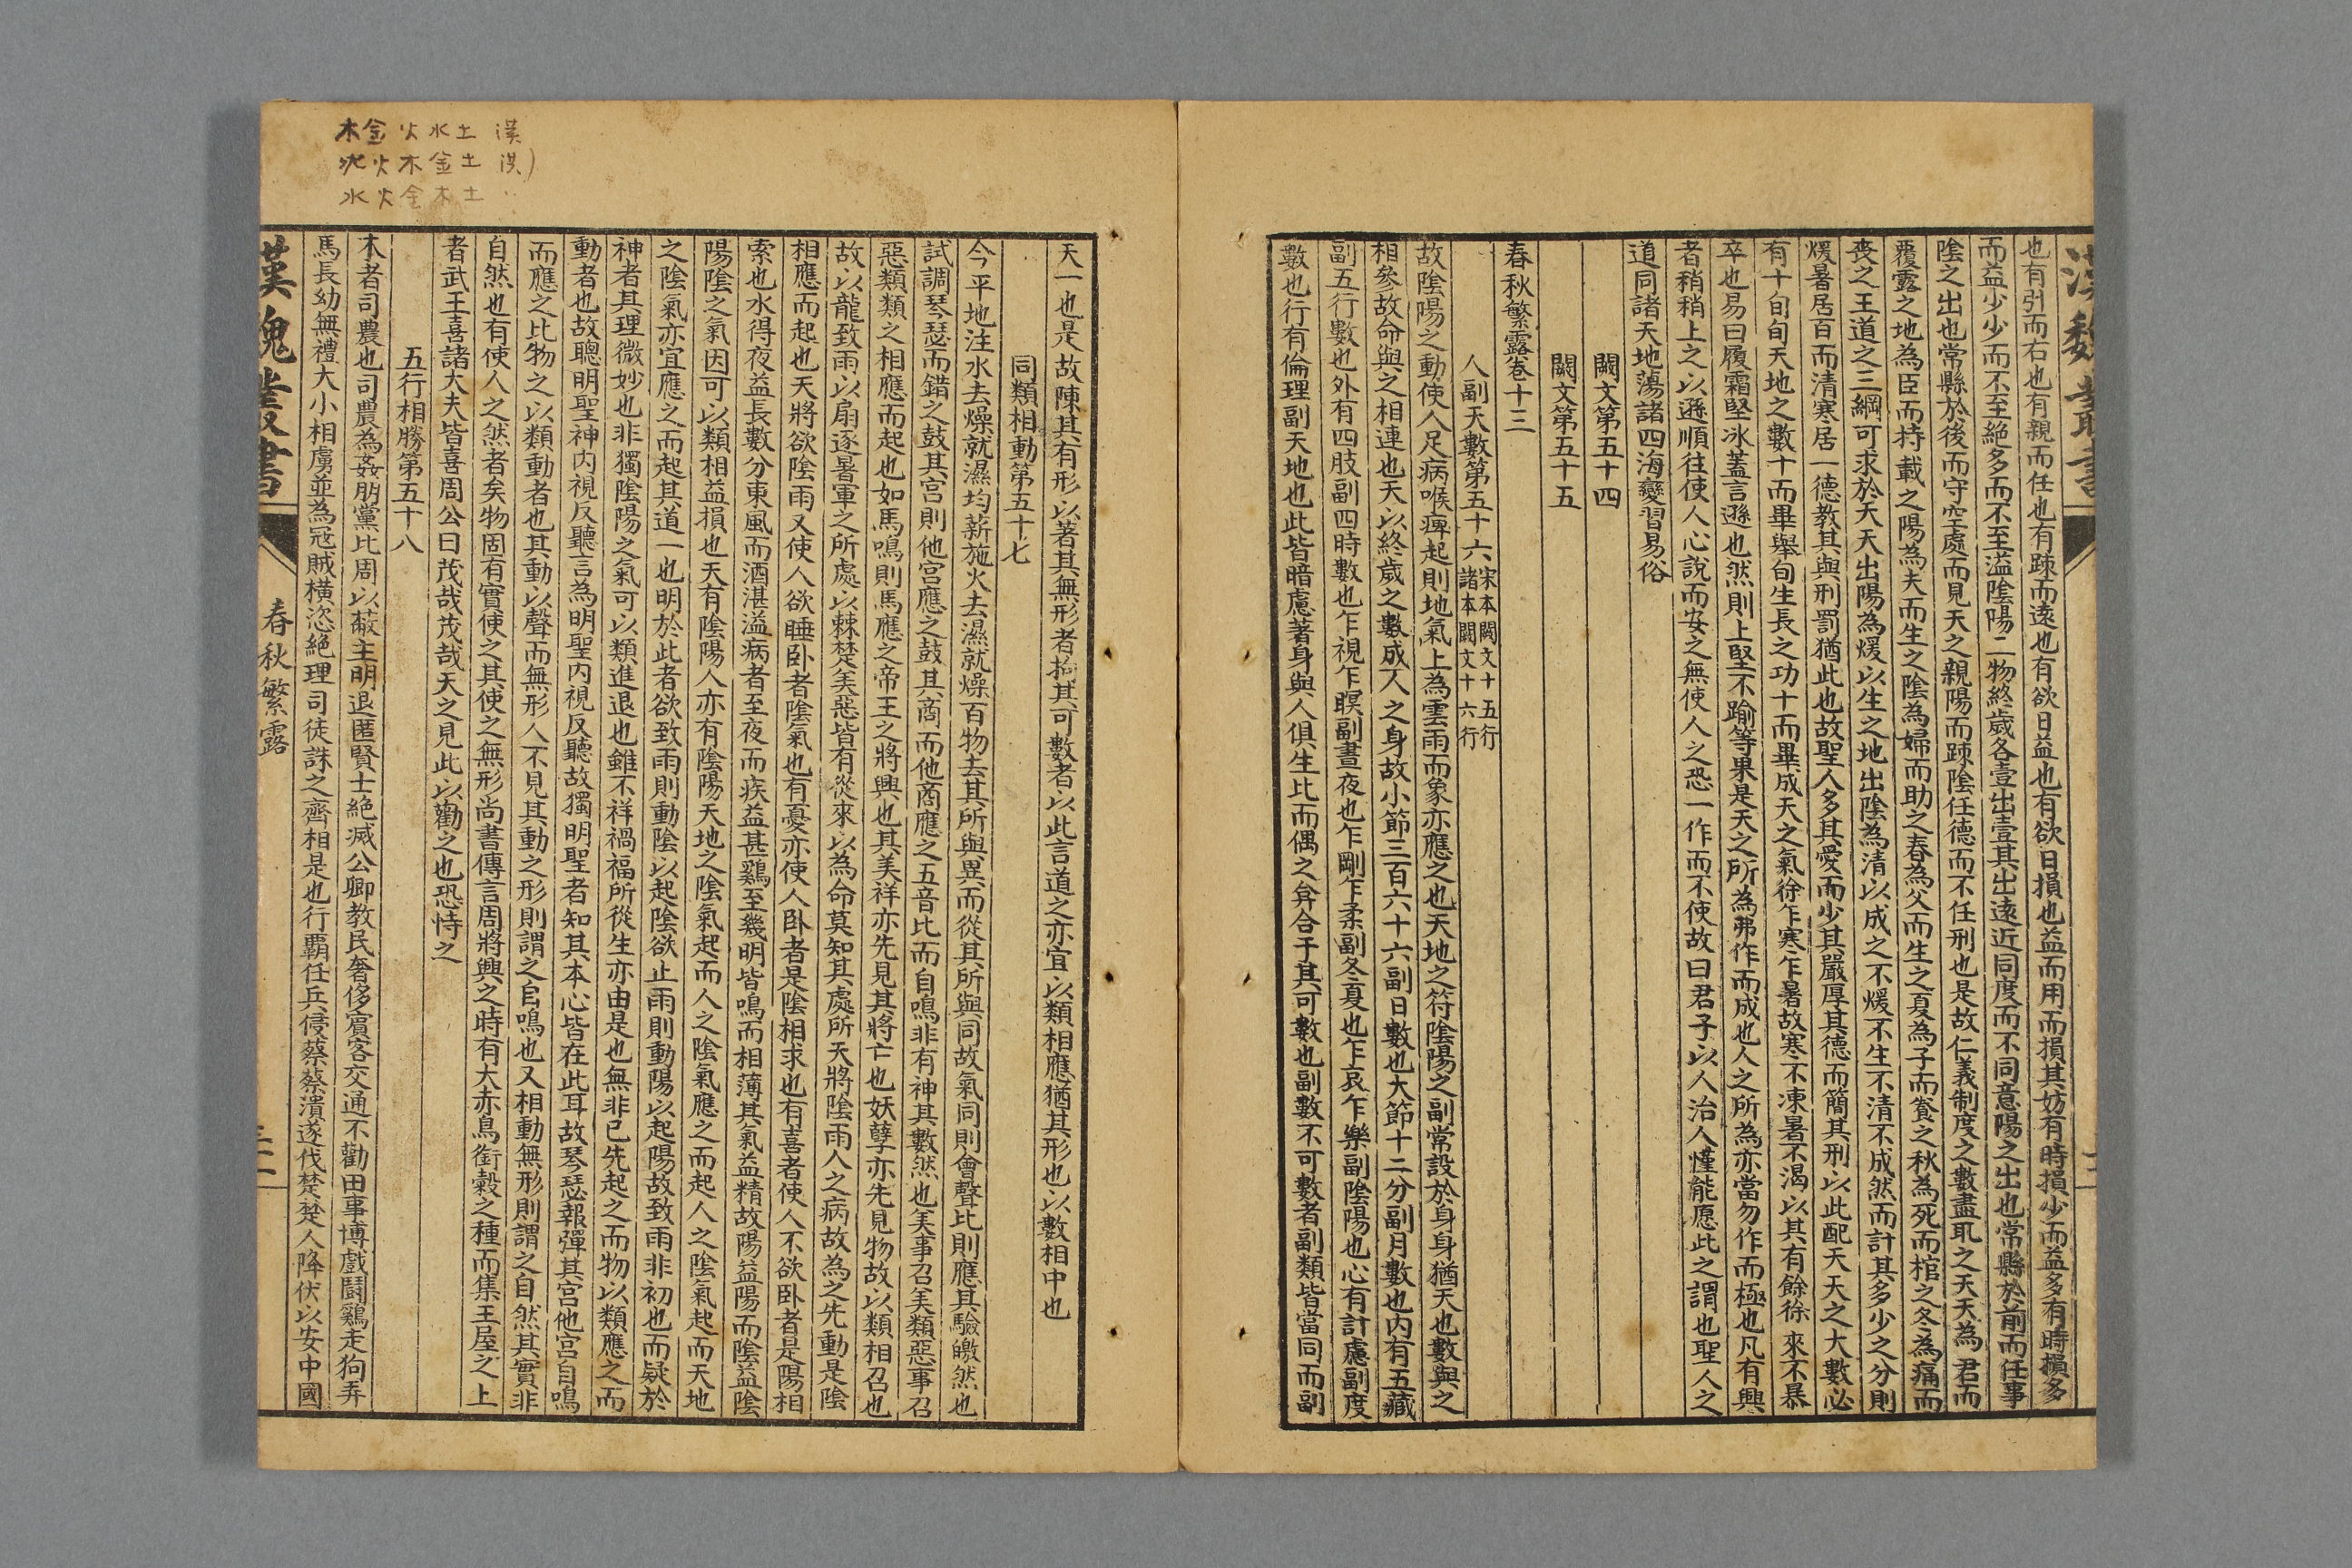 漢魏叢書
也有引而右也有親而任也有疎而遠也有欲日益也有欲日損也益而用而損其妨有時損少而益多有時損多
而益少少而不至絶多而不至溢陰陽二物終歲各壹出壹其出遠近同度而不同意陽之出也常縣於前而任事
陰之出也常縣於後而守空處而見天之親陽而疎陰任德而不任刑也是故仁義制度之數盡取之天天為君而
覆露之地為臣而持載之陽為夫而生之陰為婦而助之春為父而生之夏為子而養之秋為死而棺之冬為痛而
喪之王道之三綱可求於天天出陽為煖以生之地出陰為清以成之不煖不生不清不成然而計其多少之分則
煖暑居百而清寒居一德教其與刑罰猶此也故聖人多其愛而少其嚴厚其德而簡其刑以此配天天之大數必
有十旬旬天地之數十而畢舉旬生長之功十而畢成天之氣徐乍寒乍暑故寒不凍暑不渴以其有餘徐來不暴
卒也易曰履霜堅冰蓋言遜也然則上堅不踰等果是天之所為弗作而成也人之所為亦當勿作而極也凡有興
者稍稍上之以遜順往使人心說而安之無使人之恐一作而不使故曰君子以人治人慬能愿此之謂也聖人之
道同諸天地蕩諸四海變習易俗
闕文第五十四
闕文第五十五
春秋繁露卷十三
人副天數第五十六宋本闕文十五行諸本闕文十六行
故陰陽之動使人足病喉痺起則地氣上為雲雨而象亦應之也天地之符陰陽之副常設於身身猶天也數與之
相參故命與之相連也天以終歲之數成人之身故小節三百六十六副日數也大節十二分副月數也内有五藏
副五行數也外有四肢副四時數也乍視乍瞑副晝夜也乍剛乍柔副冬夏也乍哀乍樂副陰陽也心有計慮副度
數也行有倫理副天地也此皆暗慮著身與人俱生比而偶之弇合于其可數也副數不可數者副類皆當同而副
天一也是故陳其有形以著其無形者拘其可數者以此言道之亦宜以類相應猶其形也以數相中也
同類相動第五十七
今平地注水去燥就濕均薪施火去濕就燥百物去其所與異而從其所與同故氣同則會聲比則應其驗皦然也
試調琴瑟而錯之鼓其宫則他宫應之鼓其商而他商應之五音比而自鳴非有神其數然也美事召美類惡事召
惡類類之相應而起也如馬鳴則馬應之帝王之將興也其美祥亦先見其將亡也妖孽亦先見物故以類相召也
故以龍致雨以扇逐暑軍之所處以棘楚美惡皆有從來以為命莫知其處所天將陰雨人之病故為之先動是陰
相應而起也天將欲陰雨又使人欲睡卧者陰氣也有憂亦使人卧者是陰相求也有喜者使人不欲卧者是陽相
索也水得夜益長數分東風而酒湛溢病者至夜而疾益甚鷄至幾明皆鳴而相薄其氣益精故陽益陽而陰益陰
陽陰之氣因可以類相益損也天有陰陽人亦有陰陽天地之陰氣起而人之陰氣應之而起人之陰氣起而天地
之陰氣亦宜應之而起其道一也明於此者欲致雨則動陰以起陰欲止雨則動陽以起陽故致雨非初也而疑於
神者其理微妙也非獨陰陽之氣可以類進退也雖不祥禍福所從生亦由是也無非已先起之而物以類應之而
動者也故聰明聖神内視反聽言為明聖内視反聽故獨明聖者知其本心皆在此耳故琴瑟報彈其宫他宫自鳴
而應之比物之以類動者也其動以聲而無形人不見其動之形則謂之自鳴也又相動無形則謂之自然其實非
自然也有使人之然者矣物固有實使之其使之無形尚書傳言周將興之時有大赤烏銜穀之種而集王屋之上
者武王喜諸大夫皆喜周公曰茂哉茂哉天之見此以勸之也恐恃之
五行相勝第五十八
木者司農也司農為姦朋黨比周以蔽主明退匿賢士絶滅公卿教民奢侈賓客交通不勸田事博戲鬪鷄走狗弄
馬長幼無禮大小相虜並為冦賊橫恣絶理司徒誅之齊相是也行霸任兵侵蔡蔡潰遂伐楚楚人降伏以安中國
漢魏叢書
春秋繁露
木金火水土 漢
火木金土
水火金木土